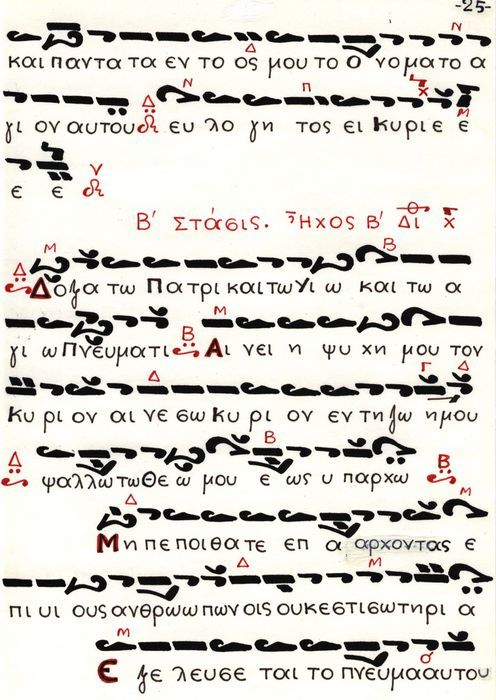 -25-
και παντα τα εν το ος μου το ο νομα το α
γι ον αυτου ευ λο γη τος ει κυριε ε
ε ε
Β΄ ΣΤΆσις. Ἦχος Β΄ Δι
Δοξα τω Πατρι και τω Υι ω και τω α
γι ω Πνευματι Αι νει η ψυ χη μου τον
κυ ρι ον αι νε σω κυ ρι ον εν τη ζω η μου
ψαλλω τω Θε ω μου ε ως υ παρχω
Μη πε ποιθατε επ α αρχοντας ε
πι υι ους ανθρωω πων οις ουκ εστι σωτηρι α
Ε ξε λευσε ται το πνευμα αυτου